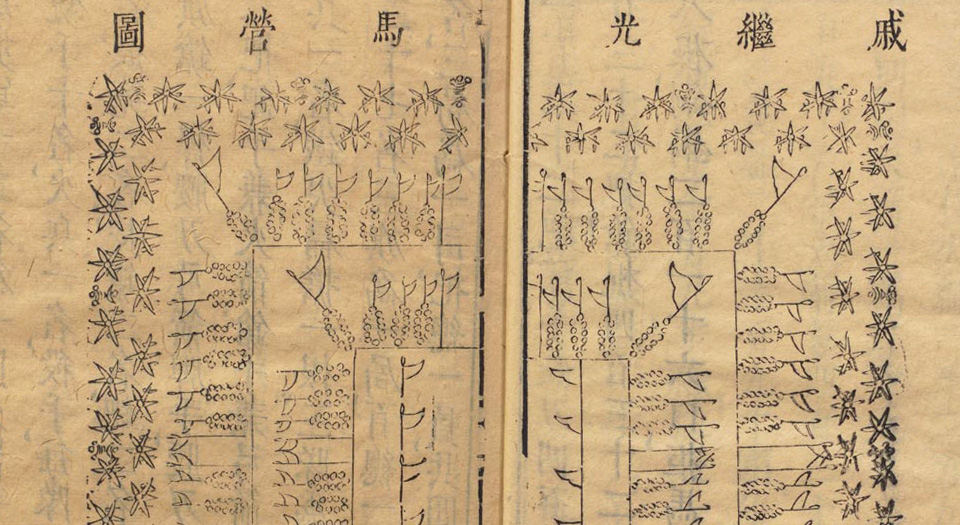 戚繼光馬營圖